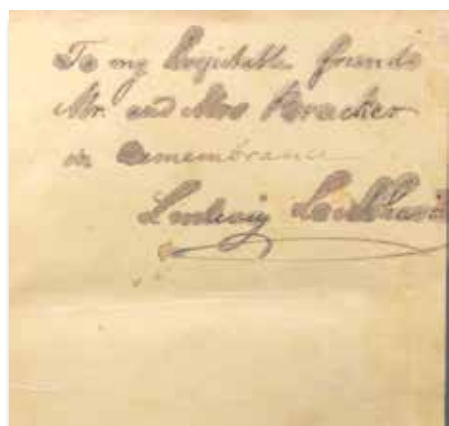 To my hospitable friends
Mr. and Mrs Bracker
in Remembrance
Ludwig Leichhardt